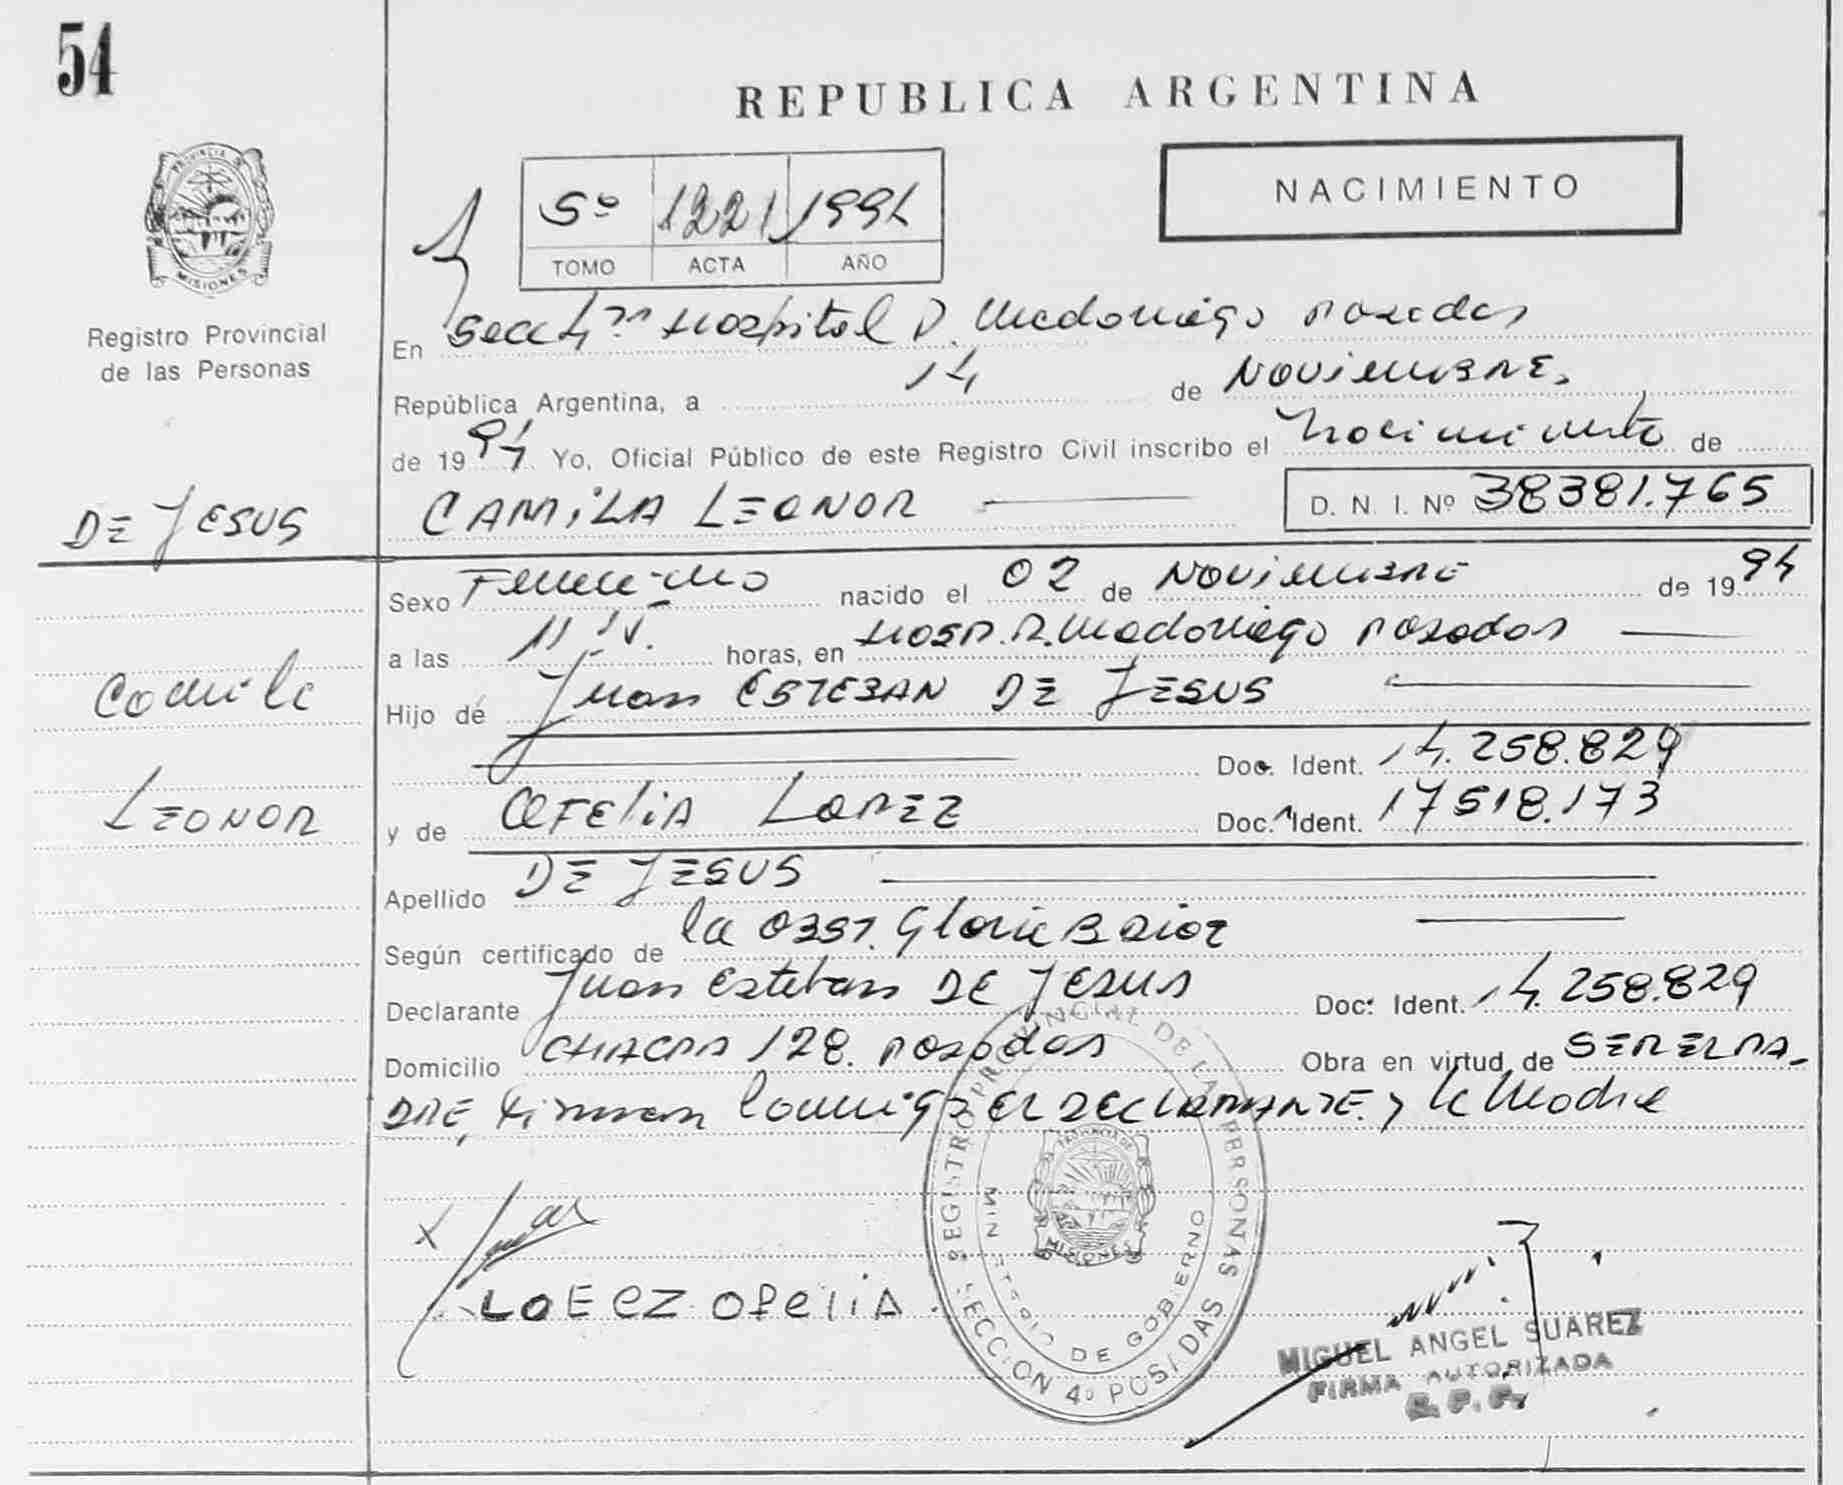 54
REPUBLICA ARGENTINA
NACIMIENTO
5º 1221 1994
TOMO ACTA AÑO
PROVINCIA DE
MISIONES
Registro Provincial
de las Personas
En Secc 4ta Hospital R. Madariaga Posadas
República Argentina, a 14 de NOVIEMBRE.
de 1994 Yo, Oficial Público de este Registro Civil inscribo el nacimiento de
DE JESUS CAMILA LEONOR D. N. I. Nº 38381.765
Sexo Femenino nacido el 02 de NOVIEMBRE de 1994
a las horas, en HOSP. R. Madariaga Posadas
Camila
Hijo de Juan ESTEBAN DE JESUS
Doc. Ident. 14.258.829
LEONOR
y de OFELIA LOPEZ Doc. Ident. 17518.173
Apellido DE JESUS
Según certificado de la OBST. Gloria
Declarante Juan Esteban DE JESUS Doc. Ident. 14.258.829
Domicilio CHACRA 128. Posadas Obra en virtud de SER EL PA-
DRE, Firman conmigo el DECLARANTE y la Madre
LOEEZ OFELIA
REGISTRO PROVINCIAL DE LAS PERSONAS
MINISTERIO DE GOBIERNO
SECCION 4º POSADAS
PROVINCIA DE
MISIONES
MIGUEL ANGEL SUAREZ
FIRMA AUTORIZADA
R. P. P.